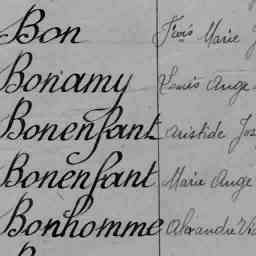 Bon Frois Marie J
Bonamy Louis Ange
Bonenfant Aristide Jos
Bonenfant Marie Ange
Bonhomme Alexandre Vic